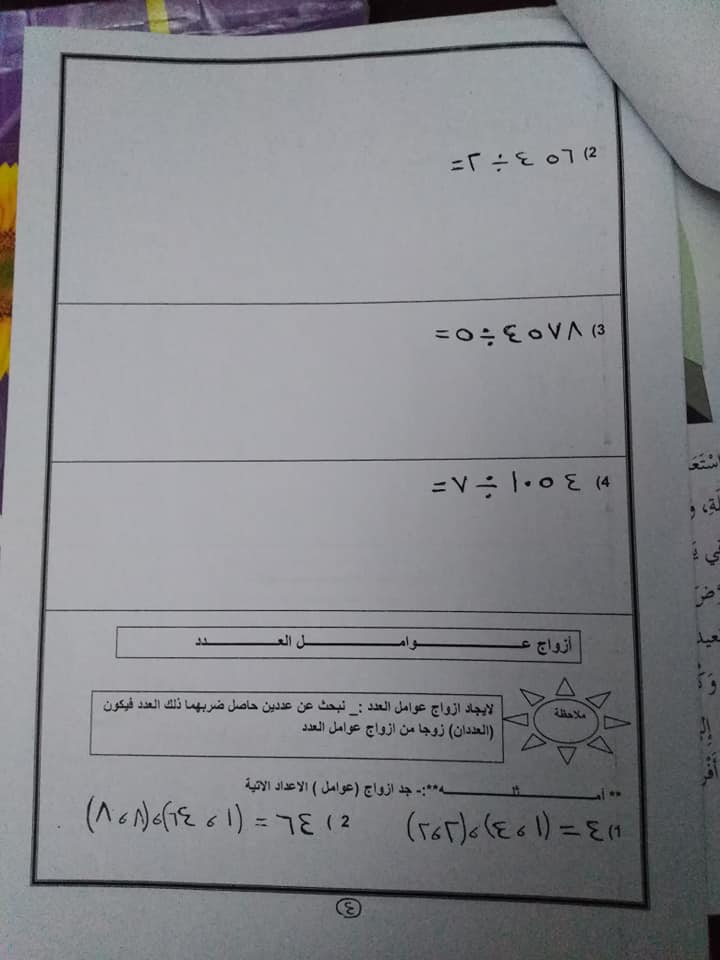 2) ٤٥٦ ÷ ٢=
3) ٤٥٧٨ ÷ ٥=
4) ١٠٥٤ ÷ ٧=
أزواج عـــــوامـــــل العـــــدد
ملاحظة
لايجاد ازواج عوامل العدد :_ نبحث عن عددين حاصل ضربهما ذلك العدد فيكون
(العددان) زوجا من ازواج عوامل العدد
** أمـــــثلـــــه**:- جد ازواج (عوامل ) الاعداد الاتية
1) ٤ = (١ و ٤) و (٢ و ٢) 2) ٦٤ = (١ و ٦٤) و (٨ و ٨)
٤